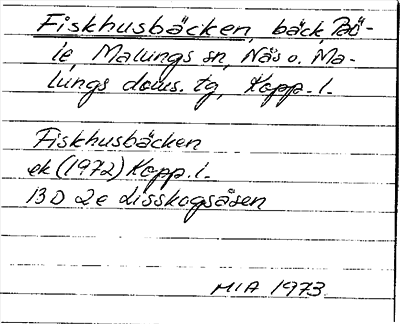 Fiskhusbäcken, bäck,
le, Malungs sn, Nås o. Ma-
lungs doms. tg, Kopp. l.
Fiskhusbäcken
ek (1972) Kopp. l.
13D 2e Lisskogsåsen
MIA 1973